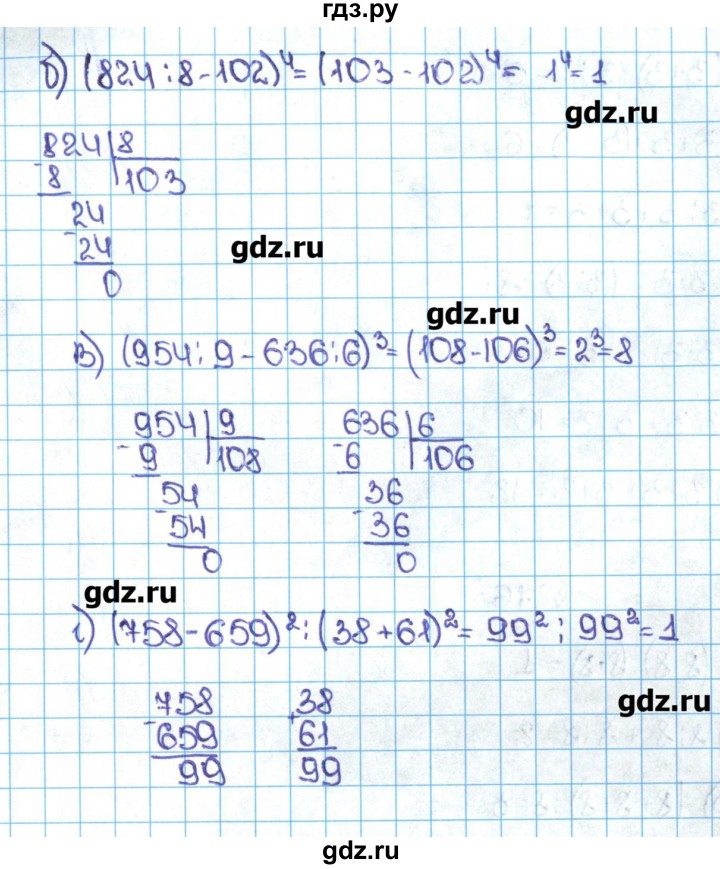 гдз.ру
б) (824 : 8 - 102)⁴ = (103 - 102)⁴ = 1⁴ = 1
gdz.ru
824 | 8
- 8 | 103
24
- 24
0
gdz.ru
gdz.ru
в) (954 : 9 - 636 : 6)³ = (108 - 106)³ = 2³ = 8
954 | 9
- 9 | 108
54
- 54
0
636 | 6
- 6 | 106
36
- 36
0
gdz.ru
г) (758 - 659)² : (38 + 61)² = 99² : 99² = 1
758
- 659
99
38
+ 61
99
gdz.ru
gdz.ru